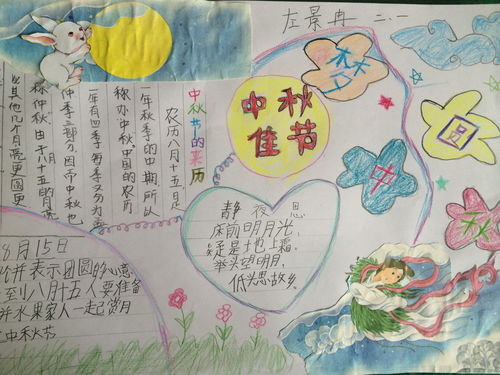 左景冉 二.一
梦
圆
中
秋
中秋
佳节
中秋节的来历
农历八月十五是
一年秋季的中期,所以
称办中秋中国的农历
一年有四季每季又分为孟
仲季三部分,因而中秋也
称仲秋,由于八月十五的月亮
比其他几个月亮更圆更
静夜思
床前明月光,
疑是地上霜。
举头望明月,
低头思故乡。
8月15日
并表示团圆的心意
至到八月十五人要准备
并水果家人一起赏月
中秋节